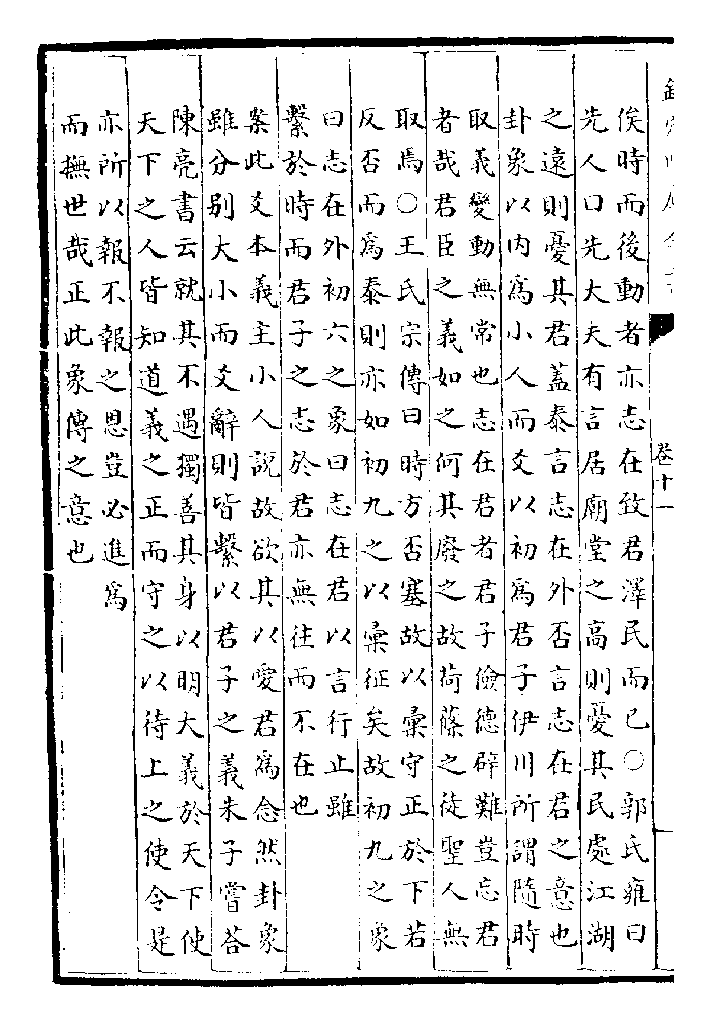 卷十一
俟時而後動者亦志在致君澤民而已○郭氏雍曰
先人曰先大夫有言居廟堂之高則憂其民處江湖
之遠則憂其君蓋泰言志在外否言志在君之意也
卦象以内爲小人而爻以初爲君子伊川所謂隨時
取義變動無常也志在君者君子儉德辟難豈忘君
者哉君臣之義如之何其廢之故荷蓧之徒聖人無
取焉○王氏宗傳曰時方否塞故以彚守正於下若
反否而爲泰則亦如初九之以彚征矣故初九之象
曰志在外初六之象曰志在君以言行止雖
繫於時而君子之志於君亦無往而不在也
案此爻本義主小人說故欲其以愛君爲念然卦象
雖分别大小而爻辭則皆繫以君子之義朱子嘗荅
陳亮書云就其不遇獨善其身以明大義於天下使
天下之人皆知道義之正而守之以待上之使令是
亦所以報不報之恩豈必進爲
而撫世哉正此象傳之意也